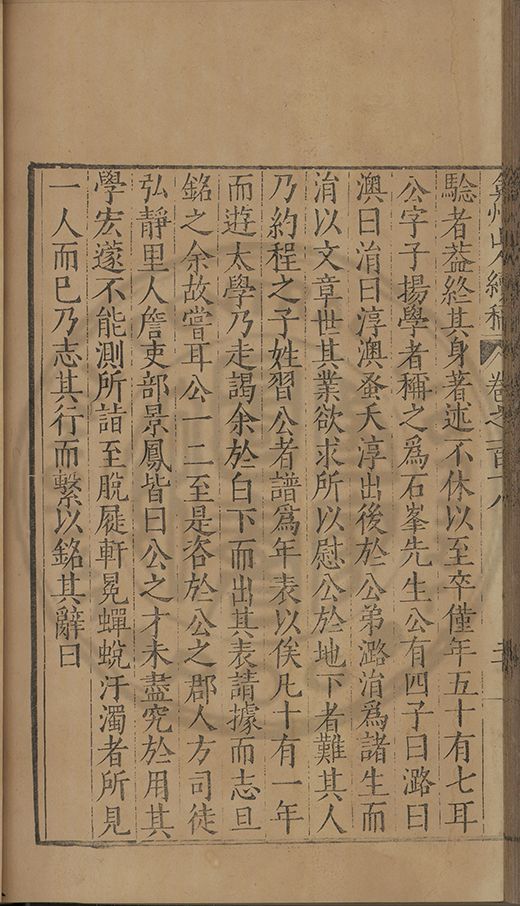 弇州山人續稿 卷之一百十八
驗者葢終其身著述不休以至卒僅年五十有七耳
公字子揚學者稱之爲石峯先生公有四子曰潞曰
澳曰淯曰淳澳蚤夭淳出後於公弟潞淯爲諸生而
淯以文章世其業欲求所以慰公於地下者難其人
乃約程之子姓習公者譜爲年表以俟凡十有一年
而遊太學乃走謁余於白下而出其表請據而志且
銘之余故嘗耳公一二至是咨於公之郡人方司徒
弘靜里人詹吏部景鳳皆曰公之才未盡究於用其
學宏邃不能測所詣至脫屣軒冕蟬蛻汙濁者所見
一人而已乃志其行而繫以銘其辭曰